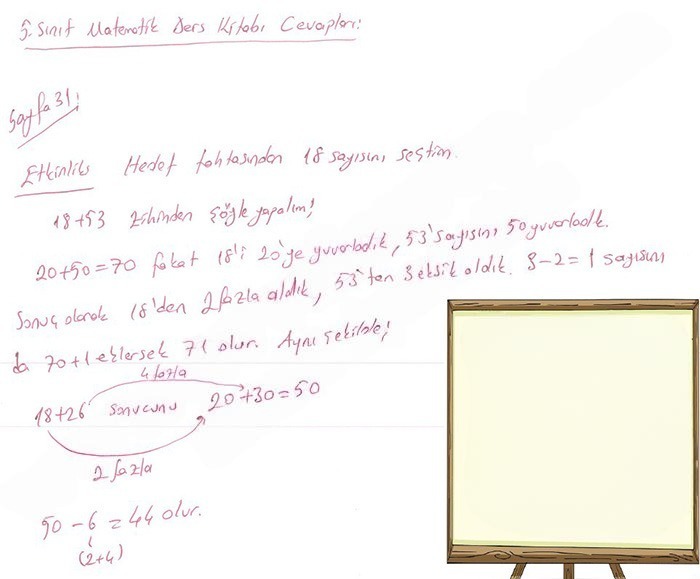 5. Sınıf Matematik Ders Kitabı Cevapları:
Sayfa 31:
Etkinlik Hedef tahtasından 18 sayısını seçtim.
18+53 Zihinden şöyle yapalım!
20+50=70 fakat 18'i 20'ye yuvarladık, 53 sayısını 50 yuvarladık.
Sonuç olarak 18'den 2 fazla aldık, 53'ten 3 eksik aldık. 3-2=1 sayısını
da 70+1 eklersek 71 olur. Aynı şekilde;
4 fazla
18+26 sonucunu 20+30=50
2 fazla
50-6=44 olur.
(2+4)